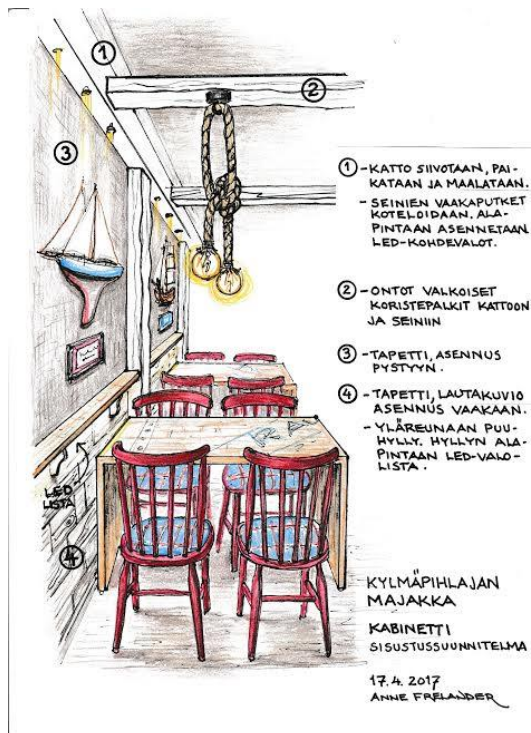 ①
②
③
① - KATTO SIIVOTAAN, PAI-
KATAAN JA MAALATAAN.
- SEINIEN VAAKAPUTKET
KOTELOIDAAN. ALA-
PINTAAN ASENNETAAN
LED-KOHDEVALOT.
② - ONTOT VALKOISET
KORISTEPALKIT KATTOON
JA SEINIIN
③ - TAPETTI, ASENNUS
PYSTYYN.
④ - TAPETTI, LAUTAKUVIO
ASENNUS VAAKAAN.
- YLÄREUNAAN PUU-
HYLLY. HYLLYN ALA-
PINTAAN LED-VALO-
LISTA.
LED
LISTA
④
KYLMÄPIHLAJAN
MAJAKKA
KABINETTI
SISUSTUSSUUNNITELMA
17.4. 2017
ANNE FRELANDER